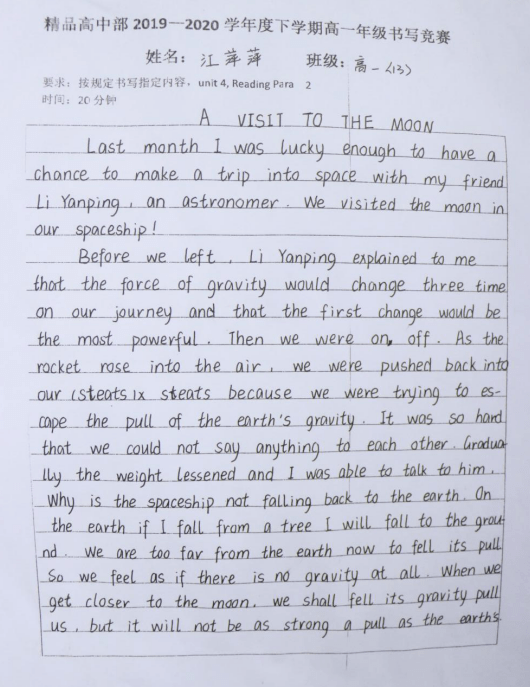 精品高中部 2019—2020 学年度下学期高一年级书写竞赛
姓名：江萍萍 班级：高一（13）
要求：按规定书写指定内容，unit 4, Reading Para 2
时间：20 分钟
A VISIT TO THE MOON
Last month I was lucky enough to have a
chance to make a trip into space with my friend
Li Yanping , an astronomer . We visited the moon in
our spaceship !
Before we left , Li Yanping explained to me
that the force of gravity would change three time
on our journey and that the first change would be
the most powerful . Then we were on, off . As the
rocket rose into the air , we were pushed back into
our (steats)x steats because we were trying to es-
cape the pull of the earth's gravity . It was so hard
that we could not say anything to each other . Gradua-
lly the weight lessened and I was able to talk to him .
Why is the spaceship not falling back to the earth . On
the earth if I fall from a tree I will fall to the grou
nd . We are too far from the earth now to fell its pull
So we feel as if there is no gravity at all . When we
get closer to the moon , we shall fell its gravity pull
us , but it will not be as strong a pull as the earth's